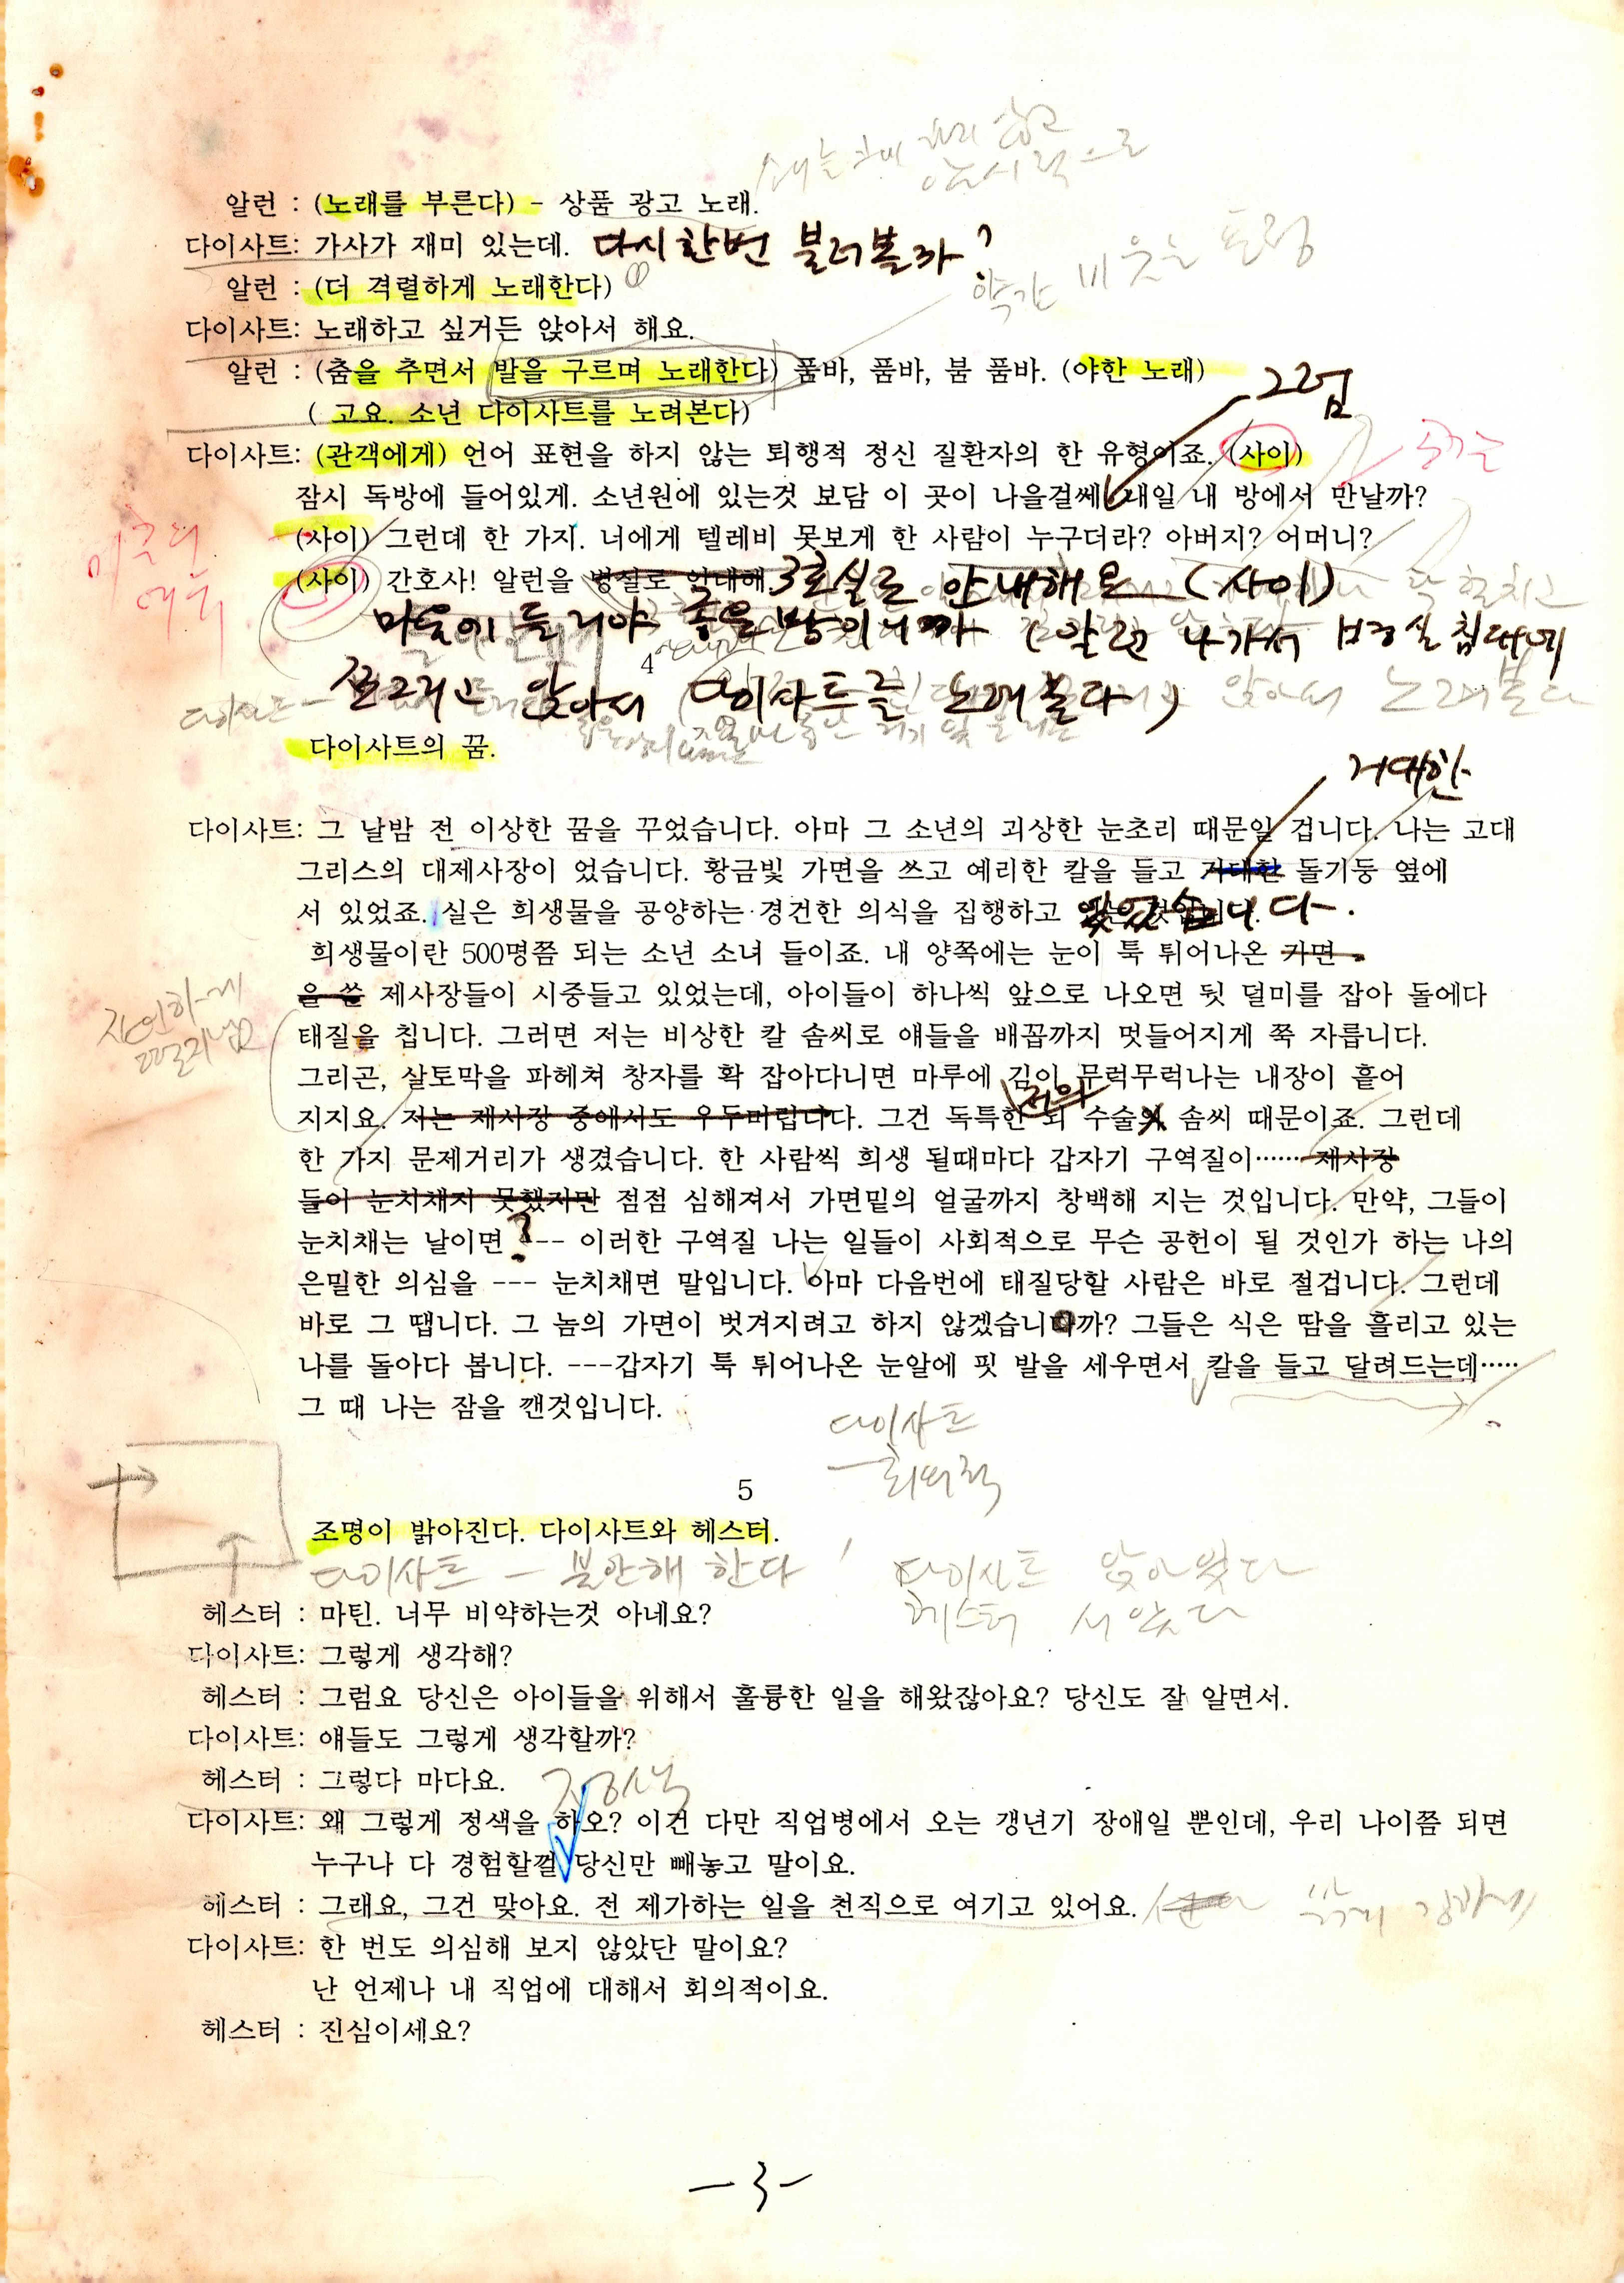 알런 : (노래를 부른다) - 상품 광고 노래.
다이사트: 가사가 재미 있는데. 다시 한번 불러볼까?
알런 : (더 격렬하게 노래한다)
약간 비웃는 표정
다이사트: 노래하고 싶거든 앉아서 해요.
알런 : (춤을 추면서 발을 구르며 노래한다) 품바, 품바, 붐 품바. (야한 노래)
그럼
( 고요. 소년 다이사트를 노려본다)
다이사트: (관객에게) 언어 표현을 하지 않는 퇴행적 정신 질환자의 한 유형이죠. (사이)
잠시 독방에 들어있게. 소년원에 있는것 보담 이 곳이 나을걸쎄. 내일 내 방에서 만날까?
(사이) 그런데 한 가지. 너에게 텔레비 못보게 한 사람이 누구더라? 아버지? 어머니?
(사이) 간호사! 알런을 병실로 안내해. 3호실로 안내해요 (사이)
마음에 들거야 좋을 방이니까 (알런 나가서 병실 침대에
4
쪼그리고 앉아서 다이사트를 노려본다)
앉아서 노려본다
다이사트의 꿈.
거대한
다이사트: 그 날밤 전 이상한 꿈을 꾸었습니다. 아마 그 소년의 괴상한 눈초리 때문일 겁니다. 나는 고대
그리스의 대제사장이 었습니다. 황금빛 가면을 쓰고 예리한 칼을 들고 거대한 돌기둥 옆에
서 있었죠. 실은 희생물을 공양하는 경건한 의식을 집행하고 있었습니다.
희생물이란 500명쯤 되는 소년 소녀 들이죠. 내 양쪽에는 눈이 툭 튀어나온 가면
을 쓴 제사장들이 시중들고 있었는데, 아이들이 하나씩 앞으로 나오면 뒷 덜미를 잡아 돌에다
잔인하게
태질을 칩니다. 그러면 저는 비상한 칼 솜씨로 얘들을 배꼽까지 멋들어지게 쭉 자릅니다.
그리곤, 살토막을 파헤쳐 창자를 확 잡아다니면 마루에 김이 무럭무럭나는 내장이 흩어
저의
지지요. 저는 제사장 중에서도 우두머립니다. 그건 독특한 뇌 수술의 솜씨 때문이죠. 그런데
한 가지 문제거리가 생겼습니다. 한 사람씩 희생 될때마다 갑자기 구역질이…… 제사장
들이 눈치채지 못했지만 점점 심해져서 가면밑의 얼굴까지 창백해 지는 것입니다. 만약, 그들이
눈치채는 날이면 ? --- 이러한 구역질 나는 일들이 사회적으로 무슨 공헌이 될 것인가 하는 나의
은밀한 의심을 --- 눈치채면 말입니다. 아마 다음번에 태질당할 사람은 바로 절겁니다. 그런데
바로 그 땝니다. 그 놈의 가면이 벗겨지려고 하지 않겠습니까? 그들은 식은 땀을 흘리고 있는
나를 돌아다 봅니다. ---갑자기 툭 튀어나온 눈알에 핏 발을 세우면서 칼을 들고 달려드는데……
그 때 나는 잠을 깬것입니다.
다이사트
- 회의적
5
조명이 밝아진다. 다이사트와 헤스터.
다이사트 - 불안해 한다 ! 다이사트 앉아있다
헤스터 서있다
헤스터 : 마틴. 너무 비약하는것 아네요?
다이사트: 그렇게 생각해?
헤스터 : 그럼요 당신은 아이들을 위해서 훌륭한 일을 해왔잖아요? 당신도 잘 알면서.
다이사트: 얘들도 그렇게 생각할까?
헤스터 : 그렇다 마다요. 정색
다이사트: 왜 그렇게 정색을 하오? 이건 다만 직업병에서 오는 갱년기 장애일 뿐인데, 우리 나이쯤 되면
누구나 다 경험할껄 당신만 빼놓고 말이요.
헤스터 : 그래요, 그건 맞아요. 전 제가하는 일을 천직으로 여기고 있어요.
다이사트: 한 번도 의심해 보지 않았단 말이요?
난 언제나 내 직업에 대해서 회의적이요.
헤스터 : 진심이세요?
- 3 -